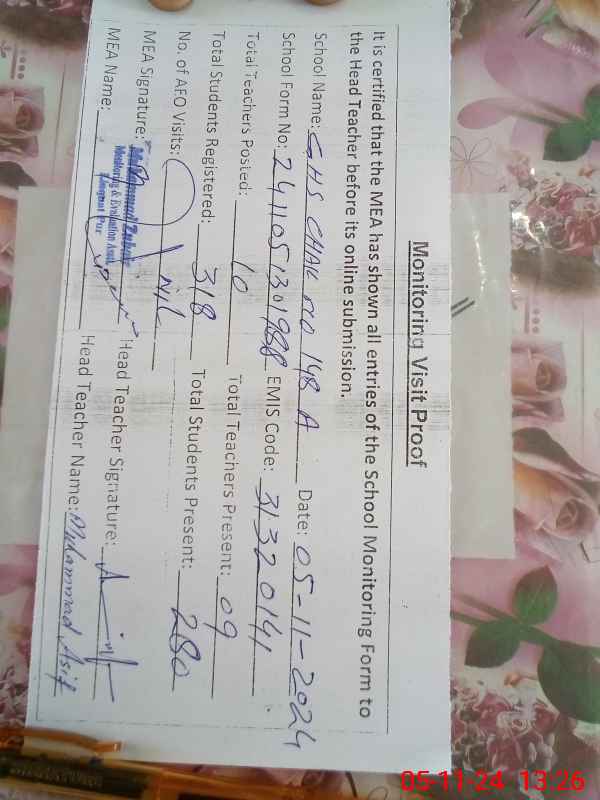 Monitoring Visit Proof
It is certified that the MEA has shown all entries of the School Monitoring Form to
the Head Teacher before its online submission.
School Name: GHS CHAK NO 148 A Date: 05-11-2024
School Form No: 2411051301988 EMIS Code: 31320141
Total Teachers Posted: 10 Total Teachers Present: 09
Total Students Registered: 318 Total Students Present: 280
No. of AEO Visits: Nil
MEA Signature: Head Teacher Signature:
Muhammad Zubair
Monitoring & Evaluation Assit.
Liaquat Pur
MEA Name: Head Teacher Name: Muhammad Asif
05-11-24 13:26